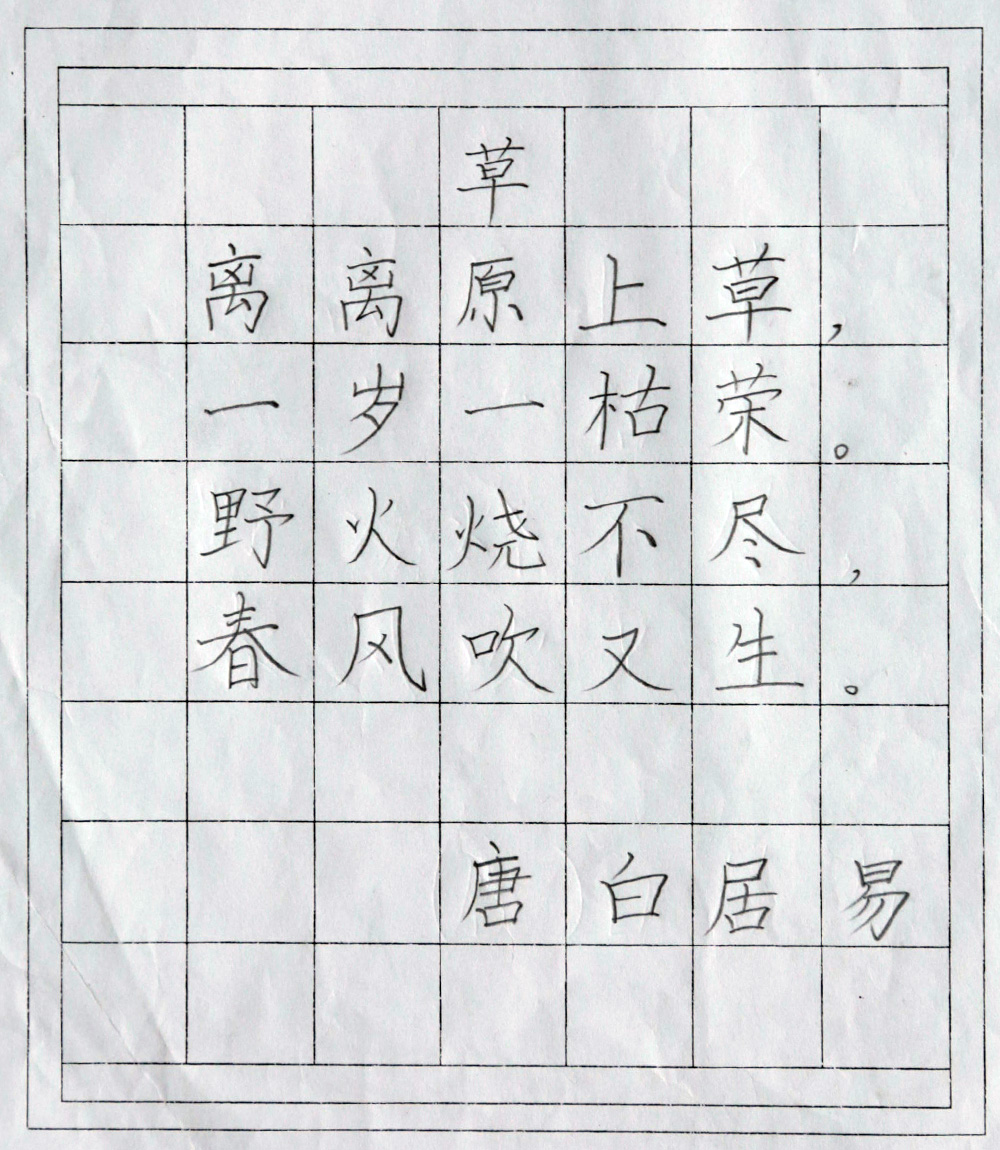 草
离离原上草，
一岁一枯荣。
野火烧不尽，
春风吹又生。
唐白居易